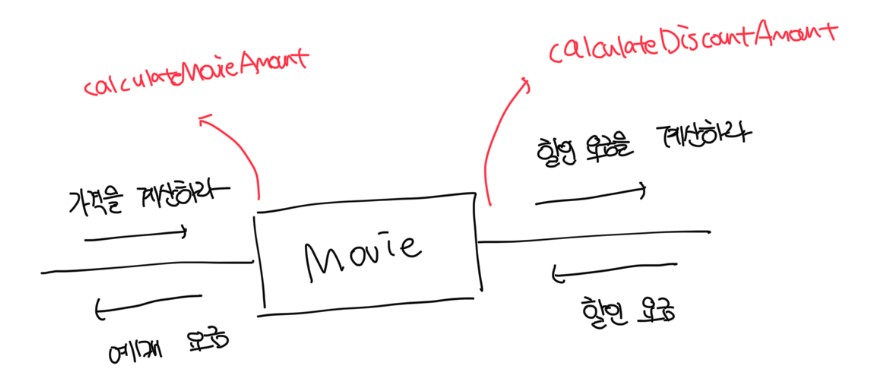 calculateMovieAmount
calculateDiscountAmount
가격을 계산하라
할인 요금을 계산하라
Movie
예매 요금
할인 요금